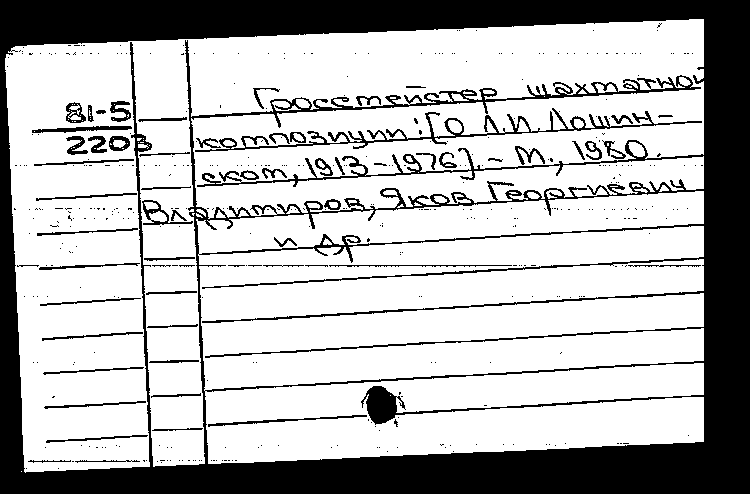 81-5
2203
Гроссмейстер шахматной
композиции: [О Л.И. Лошин-
ском, 1913-1976]. - М., 1980.
Владимиров, Яков Георгиевич
и др.